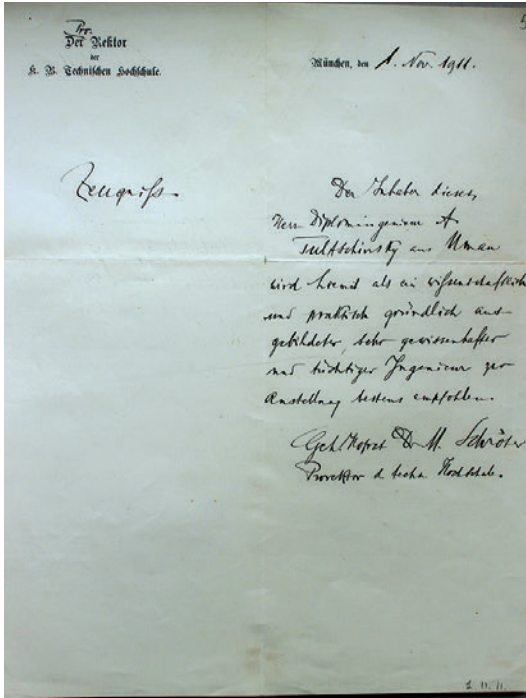 Pro.
Der Rektor
der
K. B. Technischen Hochschule.
München, den 1. Nov. 1911.
Zeugniß
Der Inhaber dieses,
Herr Diplomingenieur A.
Tultschinsky aus Uman
wird hiemit als ein wißenschaftlich
und praktisch gründlich aus-
gebildeter, sehr gewissenhafter
und tüchtiger Ingenieur zur
Anstellung bestens empfohlen.
Geh. Hofrat Dr M. Schröter
Prorektor d. techn. Hochschule.